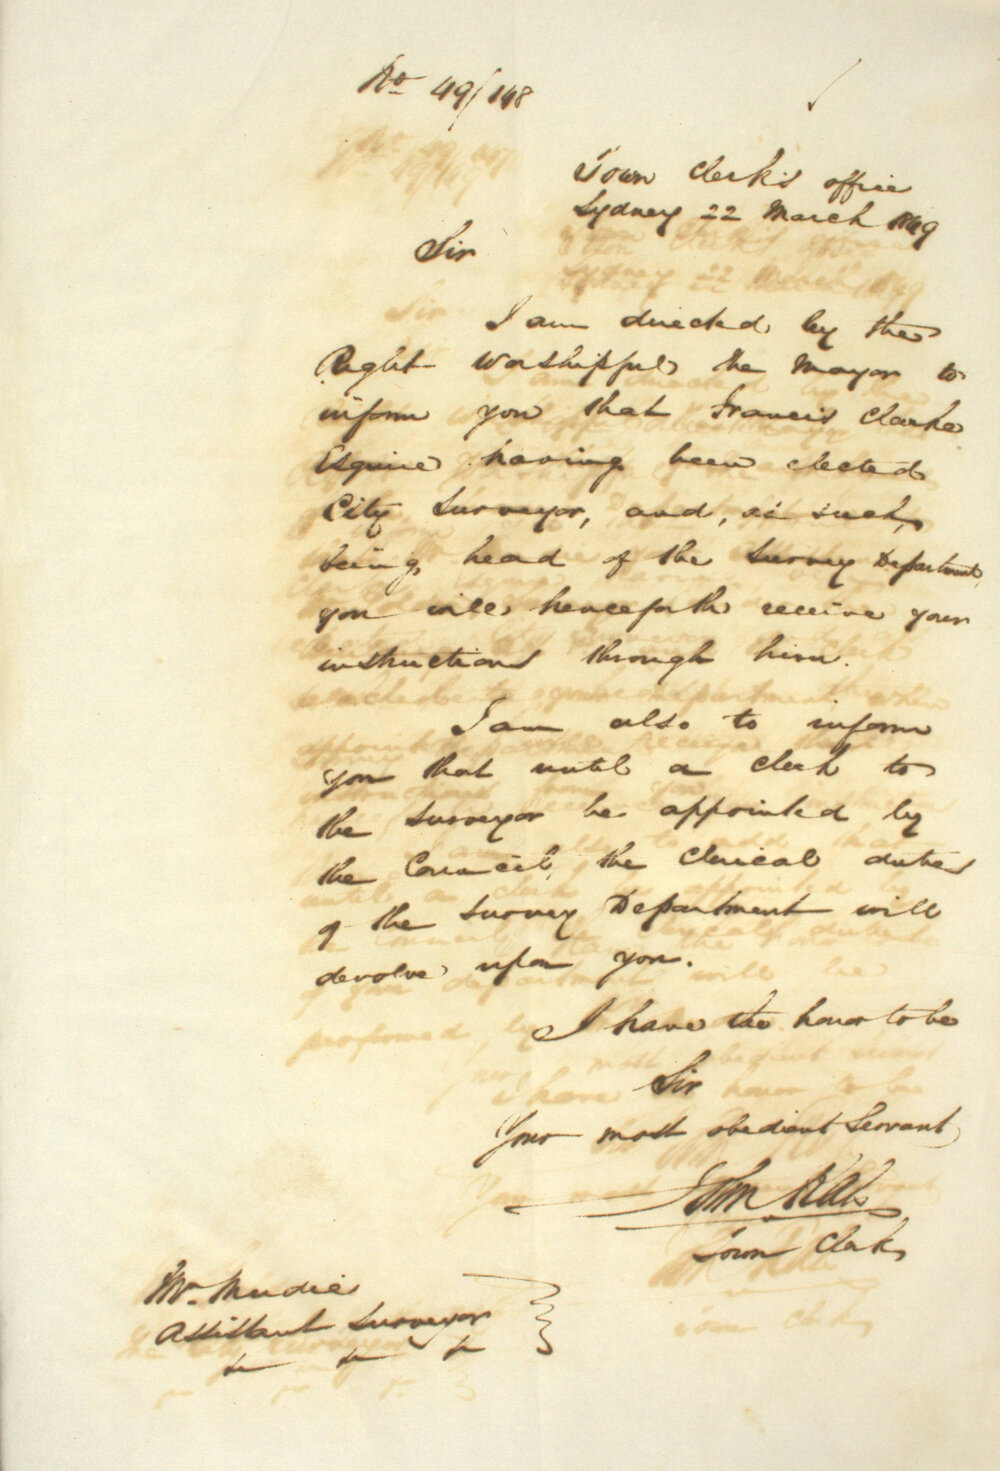 No 49/148
Town Clerk's office
Sydney 22 March 1849
Sir
I am directed by the
Right Worshipful the Mayor to
inform you that Francis Clarke
Esquire having been elected
City Surveyor, and, as such,
being head of the Survey Department,
you will henceforth receive your
instructions through him.
I am also to inform
you that until a clerk to
the Surveyor be appointed by
the Council, the Clerical duties
of the Survey Department will
devolve upon you.
I have the honor to be
Sir
Your most obedient Servant
John Rae
Town Clerk
Mr. Mudie
Assistant Surveyor